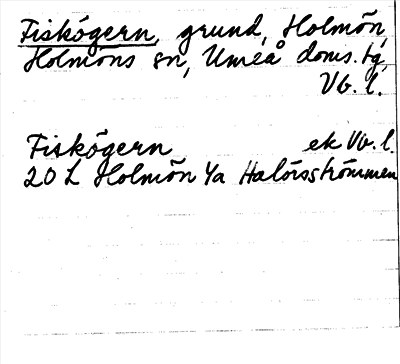 Fiskögern, grund, Holmön,
Holmöns sn, Umeå doms. tg,
Vb. l.
Fiskögern ek Vb. l.
20 L Holmön Ya Halörsströmmen